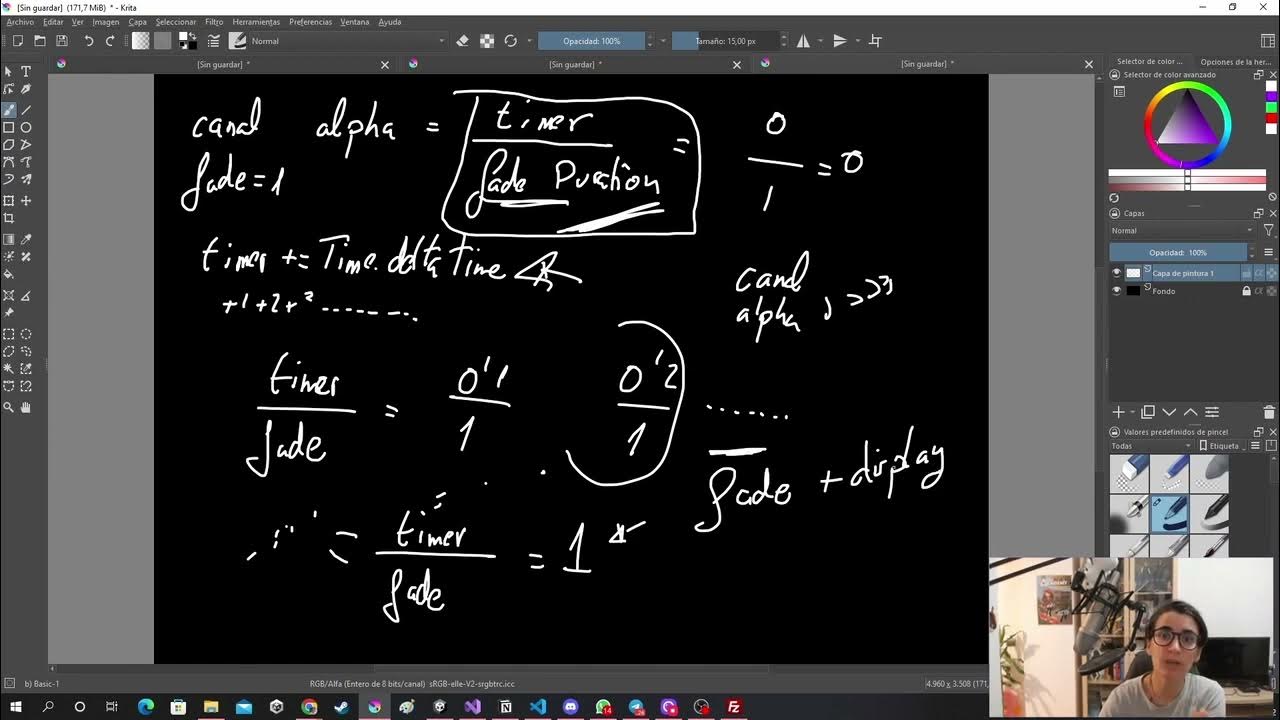 [Sin guardar] (171,7 MiB) * - Krita
Archivo Editar Ver Imagen Capa Seleccionar Filtro Herramientas Preferencias Ventana Ayuda
Normal Opacidad: 100% Tamaño: 15,00 px
[Sin guardar] * [Sin guardar] * [Sin guardar] *
canal alpha = timer / fade Duration = 0 / 1 = 0
fade = 1
timer += Time.deltaTime
+1+2+3.........
canal
alpha
timer / fade = 0'1 / 1 0'2 / 1 .......
fade + display
timer / fade = 1
Selector de color ... Opciones de la her...
Selector de color avanzado
Capas
Normal
Opacidad: 100%
Capa de pintura 1
Fondo
Valores predefinidos de pincel
Todas Etiqueta
b) Basic-1 RGB/Alfa (Entero de 8 bits/canal) sRGB-elle-V2-srgbtrc.icc 4.960 x 3.508 (171,